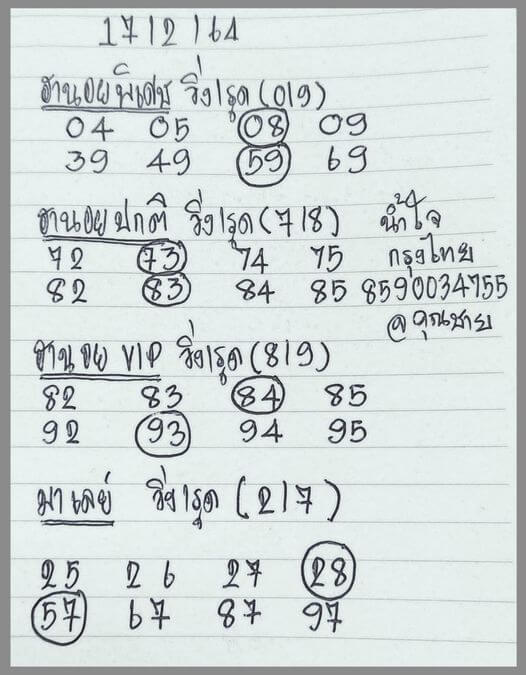 17/2/64
ฮานอยพิเศษ วิ่ง/รูด (0/9)
04 05 08 09
39 49 59 69
ฮานอยปกติ วิ่ง/รูด (7/8)
72 73 74 75
82 83 84 85
น้ำใจ
กรุงไทย
8590034755
@คุณชาย
ฮานอย VIP วิ่ง/รูด (8/9)
82 83 84 85
92 93 94 95
มาเลย์ วิ่ง/รูด (2/7)
25 26 27 28
57 67 87 97